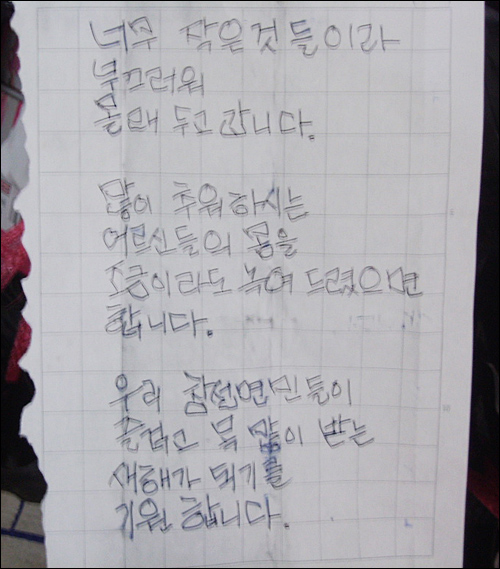 너무 작은것들이라
부끄러워
몰래 두고 갑니다.
많이 추워하시는
어르신들의 몸을
조금이라도 녹여 드렸으면
합니다.
우리 창전면민들이
즐겁고 복 많이 받는
새해가 되기를
기원 합니다.